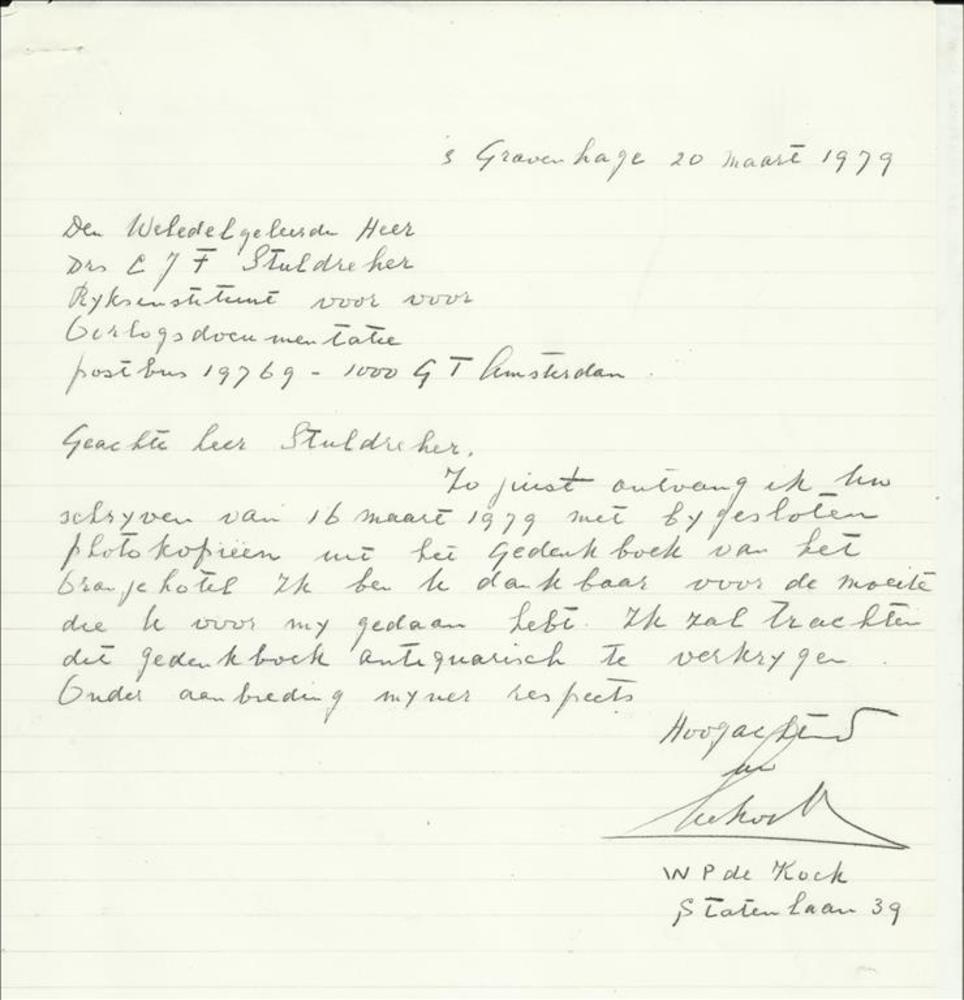 's Gravenhage 20 maart 1979
Den Weledelgeleerde Heer
Drs C J F Stuldreher
Ryksinstituut voor voor
Oorlogsdocumentatie
postbus 19769 - 1000 G T Amsterdam.
Geachte heer Stuldreher,
Zo juist ontvang ik Uw
schryven van 16 maart 1979 met bygesloten
photokopieën uit het Gedenkboek van het
Oranjehotel Ik ben U dankbaar voor de moeite
die U voor my gedaan hebt. Ik zal trachten
dit gedenkboek antiquarisch te verkrygen.
Onder aanbieding myner respects
Hoogachtend
W P de Kock
Statenlaan 39